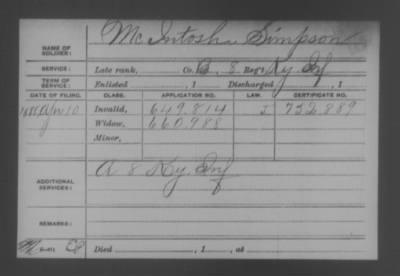 NAME OF SOLDIER: McIntosh, Simpson
SERVICE: Late rank, Co. B, 8 Reg't Ky. Inf
TERM OF SERVICE: Enlisted , 1 Discharged , 1
DATE OF FILING. CLASS. APPLICATION NO. LAW. CERTIFICATE NO.
Apr 10 Invalid, 649.814 732.889
Widow, 660.988
Minor,
ADDITIONAL SERVICES: A 8 Ky. Inf
REMARKS:
Died , 1 , at